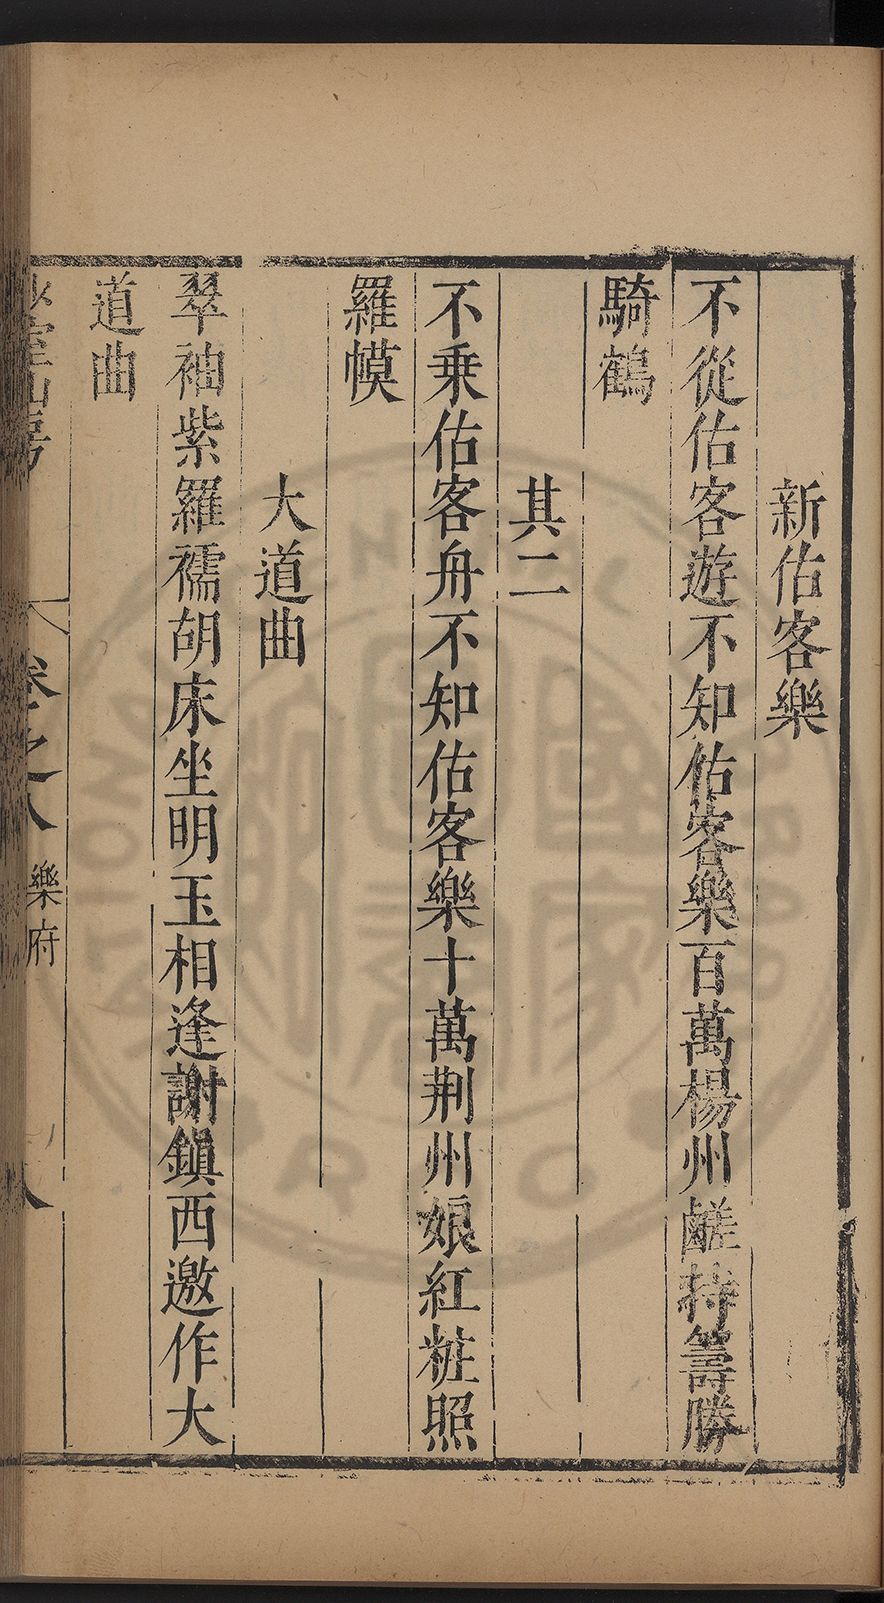 新估客樂
不從估客遊不知估客樂百萬楊州鹺持籌勝
騎鶴
其二
不乘估客舟不知估客樂十萬荆州娘紅粧照
羅幙
大道曲
翠袖紫羅襦胡床坐明玉相逢謝鎮西邀作大
道曲
山房
卷之八
樂府
八